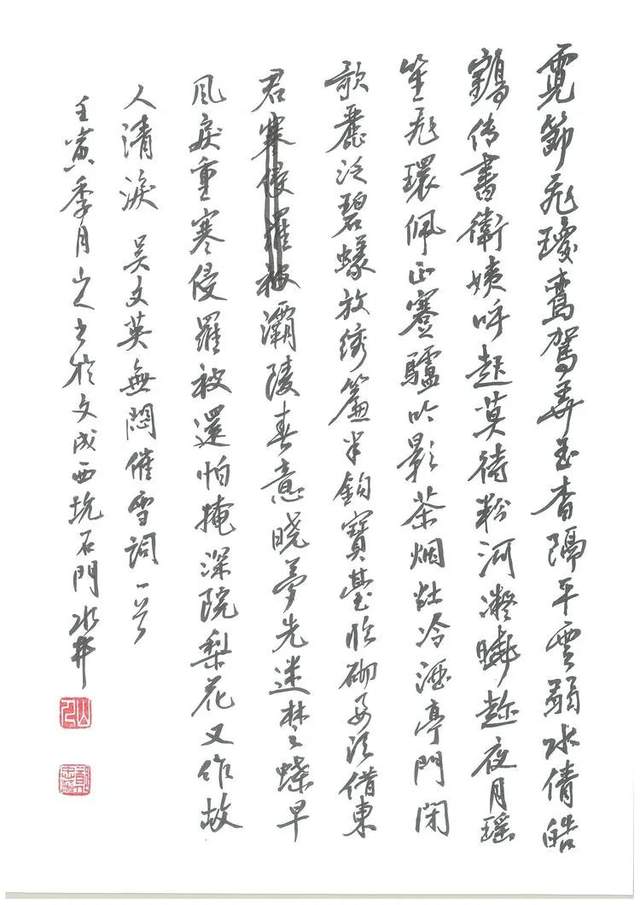 霓節飛瓊鸞駕弄玉杳隔平雲弱水倩皓
鶴傳書衛姨呼起莫待粉河凝曉趁夜月瑤
笙飛環佩正蹇驢吟影茶烟灶冷酒亭門閉
歌麗泛碧蟻放绣簾半鈎寶臺臨砌要須借東
君寒侵羅被灞陵春意曉夢先迷楚蝶早
風戾重寒侵羅被還怕掩深院梨花又作故
人清淚 吳文英無悶催雪詞一首
壬寅季月山人書於文成西坑石門水井